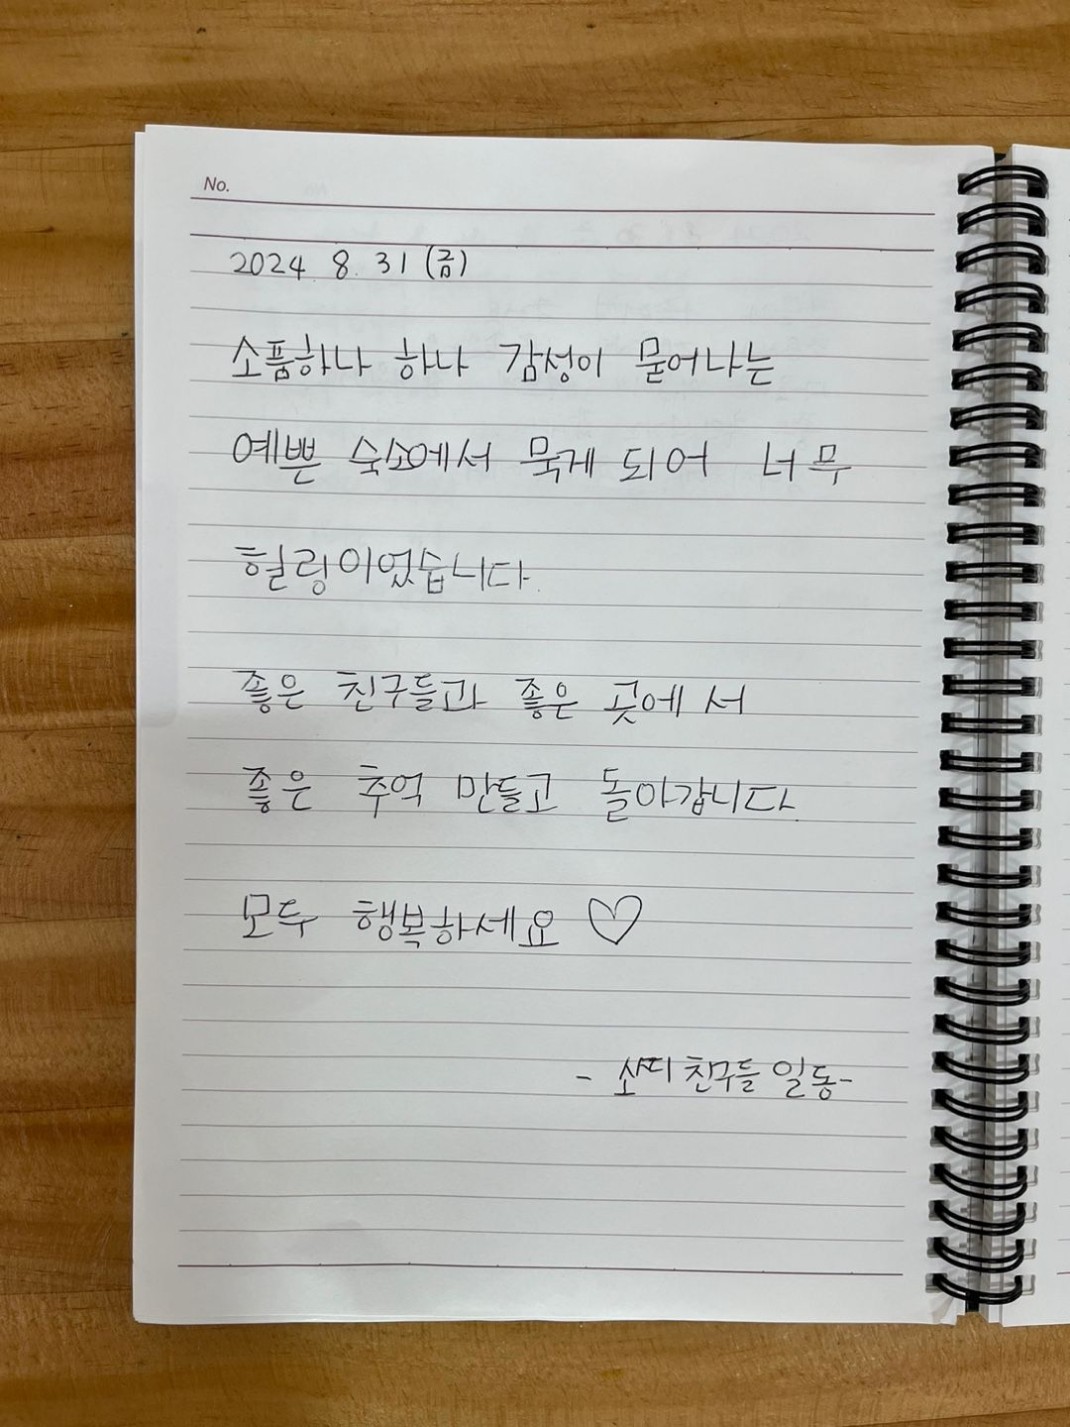 No.
2024. 8. 31 (금)
소품하나 하나 감성이 묻어나는
예쁜 숙소에서 묵게 되어 너무
힐링이었습니다.
좋은 친구들과 좋은 곳에서
좋은 추억 만들고 돌아갑니다.
모두 행복하세요 ♡
- 친구들 일동-